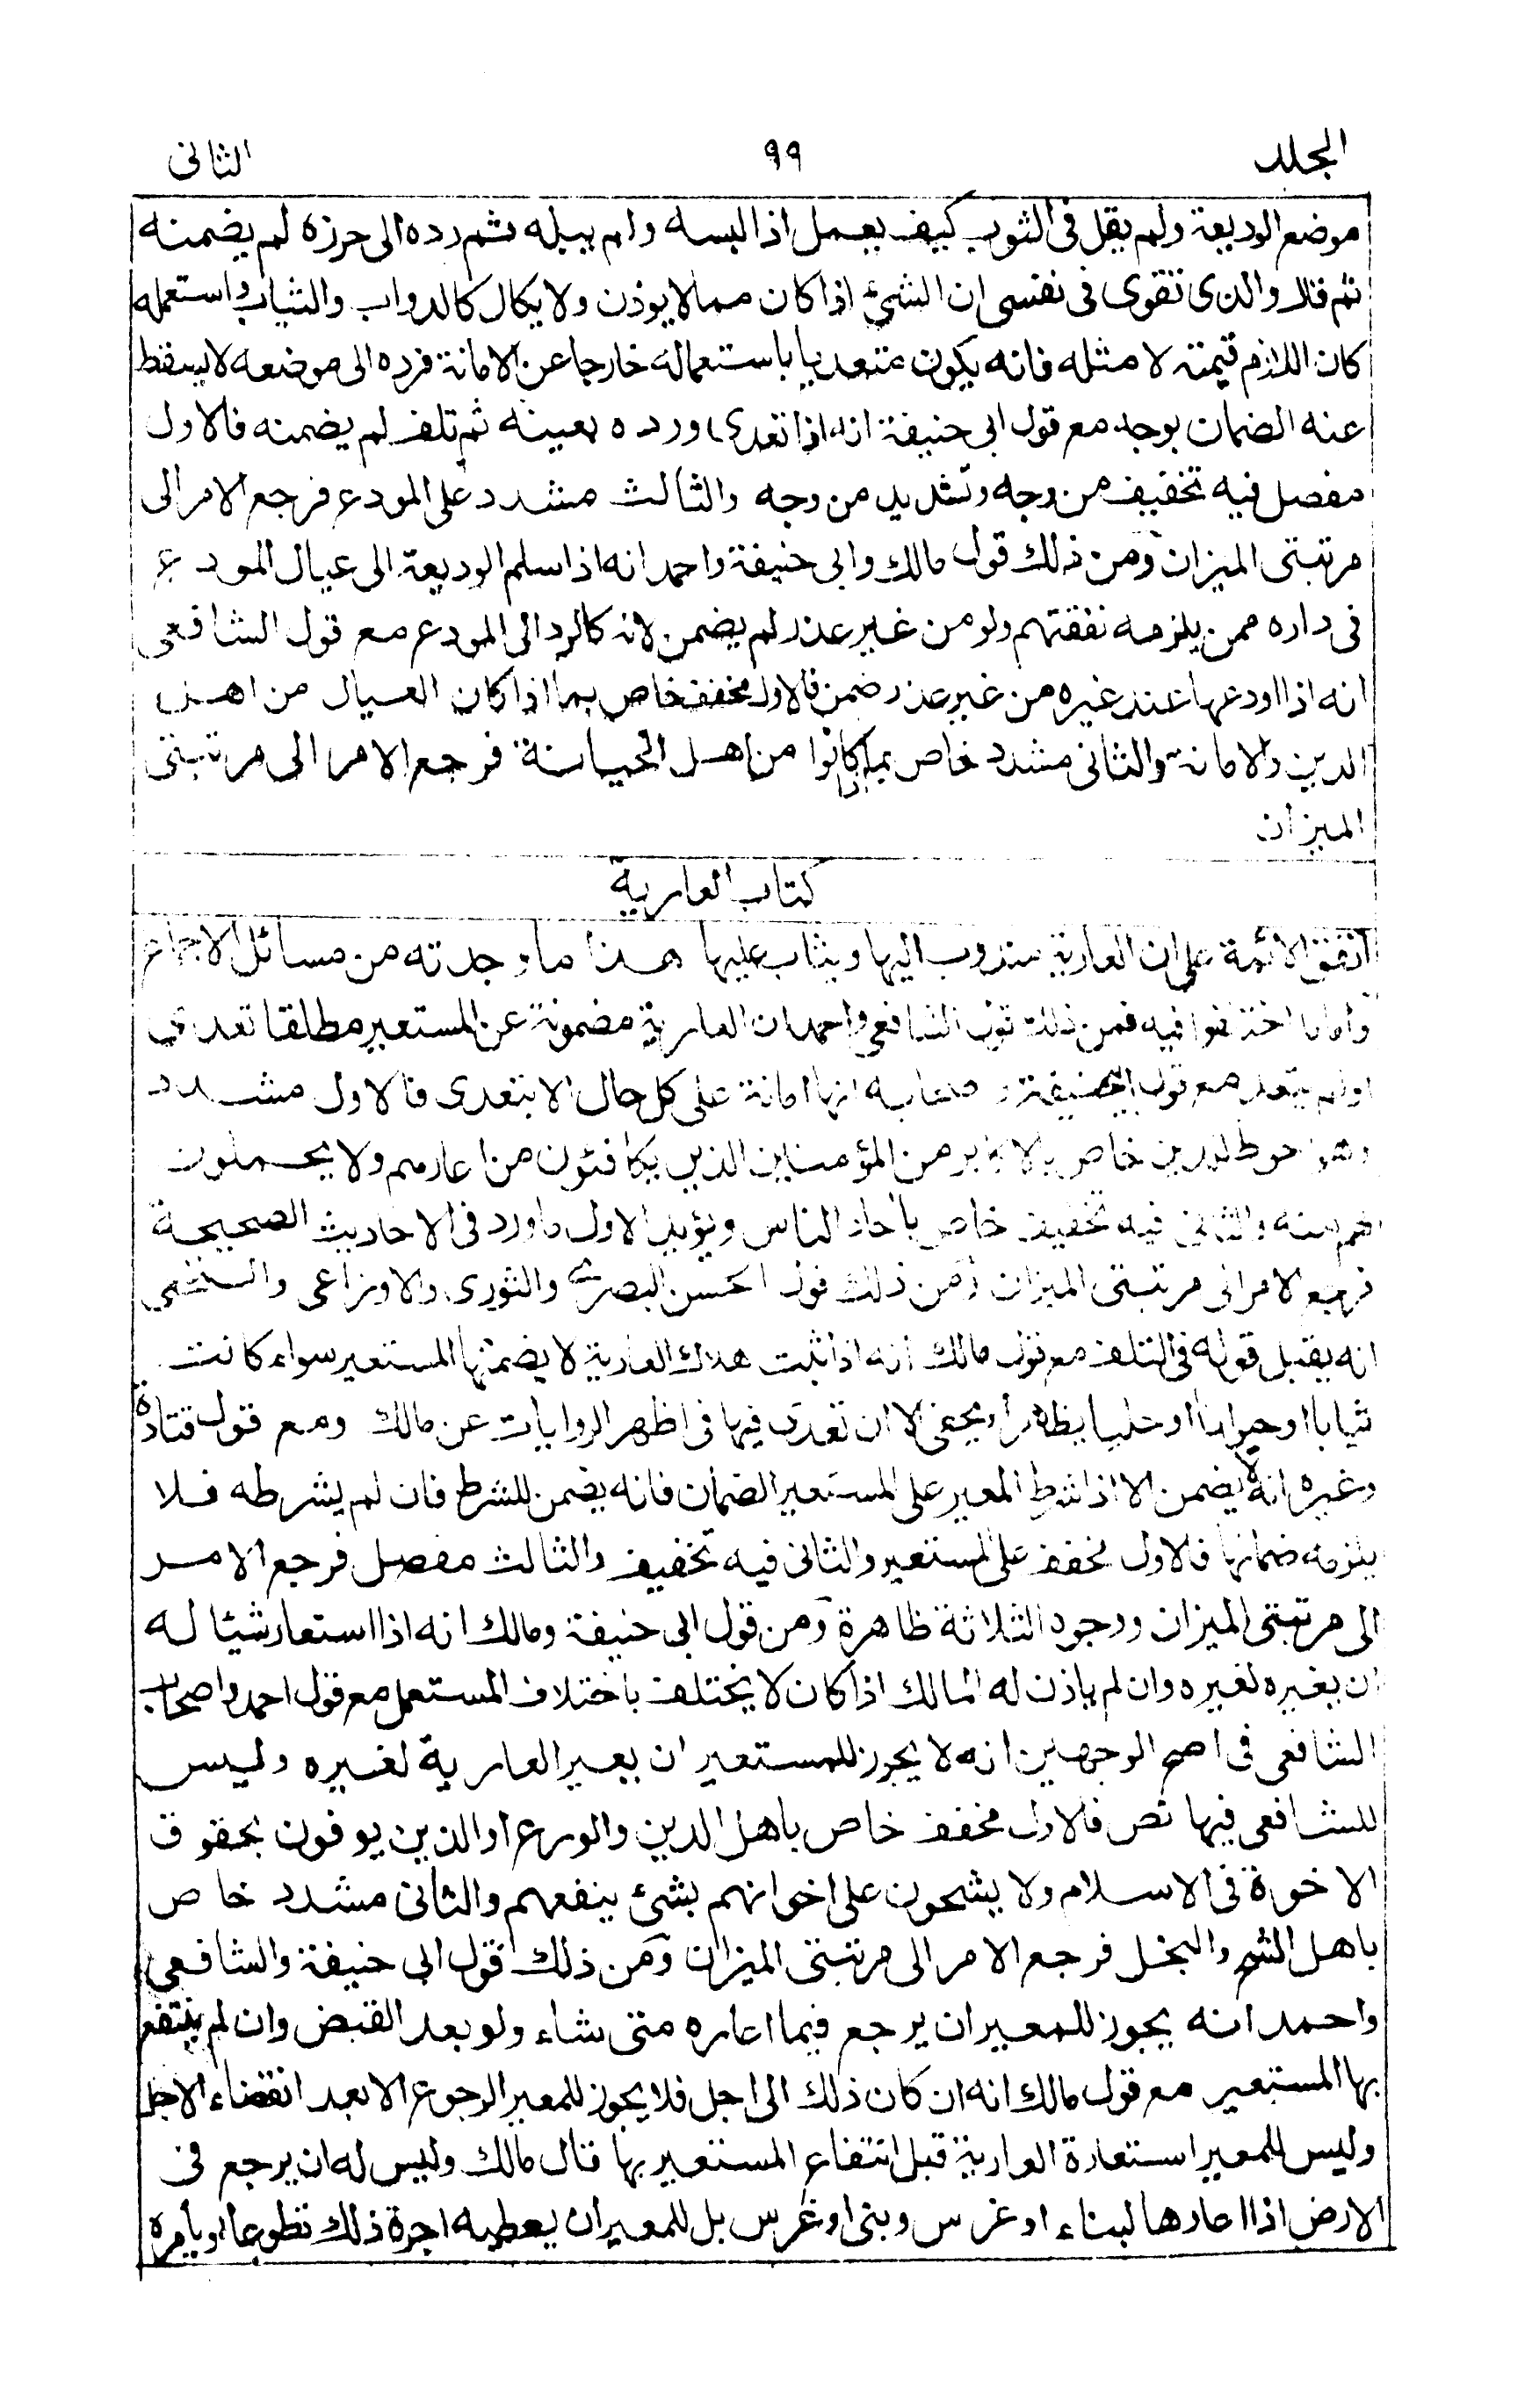 المجلد ٩٩ الثانى
موضع الوديعة ولم يقل فى الثوب كيف يعمل اذا لبسه ولم يبله ثم رده الى حرزه لم يضمنه
ثم قال والذى تقوى فى نفسى ان الشئ اذا كان مما لا يوذن ولا يكال كالدواب والثياب واستعمله
كان اللازم قيمته لا مثله فانه يكون متعديا باستعماله خارجا عن الامانة فرده الى موضعه لا يسقط
عنه الضمان بوجه مع قول ابى حنيفة انه اذا تعدى ورده بعينه ثم تلف لم يضمنه فالاول
مفصل فيه تخفيف من وجه وتشديد من وجه والثالث مشدد على المودع فرجع الامر الى
مرتبتى الميزان ومن ذلك قول مالك وابى حنيفة واحمد انه اذا سلم الوديعة الى عيال المودع
فى داره ممن يلزمه نفقتهم ولو من غير عذر لم يضمن لانه كالرد الى المودع مع قول الشافعى
انه اذا اودعها عند غيره من غير عذر ضمن فالاول مخفف خاص بما اذا كان العيال من اهل
الدين والامانة والثانى مشدد خاص بما اذا كانوا من اهل الخيانة فرجع الامر الى مرتبتى
الميزان
كتاب العارية
اتفق الائمة على ان العارية مندوب اليها ويثاب عليها هذا ما وجدته من مسائل الاجماع
وأما ما اختلفوا فيه فمن ذلك قول الشافعى واحمد ان العارية مضمونة عن المستعير مطلقا تعدى
او لم يتعد مع قول ابى حنيفة واصحابه انها امانة على كل حال الا بتعدى فالاول مشدد
وهو احوط للدين خاص بالاكابر من المؤمنين الذين يكافئون من اعارهم ولا يحملون
منه والثانى فيه تخفيف خاص بأحاد الناس ويؤيد الاول ما ورد فى الاحاديث الصحيحة
فرجع الامر الى مرتبتى الميزان ومن ذلك قول الحسن البصرى والثورى والاوزاعى والنخعى
انه يقبل قوله فى التلف مع قول مالك انه اذا ثبت هلاك العارية لا يضمنها المستعير سواء كانت
ثيابا او حيوانا او حليا يظهر أو يخفى الا ان تعدى فيها فى اظهر الروايات عن مالك ومع قول قتادة
وغيره انه لا يضمن الا اذا شرط المعير على المستعير الضمان فانه يضمن للشرط فان لم يشرطه فلا
يلزمه ضمانها فالاول مخفف على المستعير والثانى فيه تخفيف والثالث مفصل فرجع الامر
الى مرتبتى الميزان ووجوه الثلاثة ظاهرة ومن قول ابى حنيفة ومالك انه اذا استعار شيئا له
ان يعيره لغيره وان لم ياذن له المالك اذا كان لا يختلف باختلاف المستعمل مع قول احمد واصحاب
الشافعى فى اصح الوجهين انه لا يجوز للمستعير ان يعير العارية لغيره وليس
للشافعى فيها نص فالاول مخفف خاص باهل الدين والورع او الذين يوفون بحقوق
الاخوة فى الاسلام ولا يشحون على اخوانهم بشئ ينفعهم والثانى مشدد خاص
باهل الشح والبخل فرجع الامر الى مرتبتى الميزان ومن ذلك قول ابى حنيفة والشافعى
واحمد انه يجوز للمعير ان يرجع فيما اعاره متى شاء ولو بعد القبض وان لم ينتفع
بها المستعير مع قول مالك انه ان كان ذلك الى اجل فلا يجوز للمعير الرجوع الا بعد انقضاء الاجل
وليس للمعير استعادة العارية قبل انتفاع المستعير بها قال مالك وليس له ان يرجع فى
الارض اذا اعارها لبناء او غرس وبنى او غرس بل للمعير ان يعطيه اجرة ذلك تطوعا او يأمره